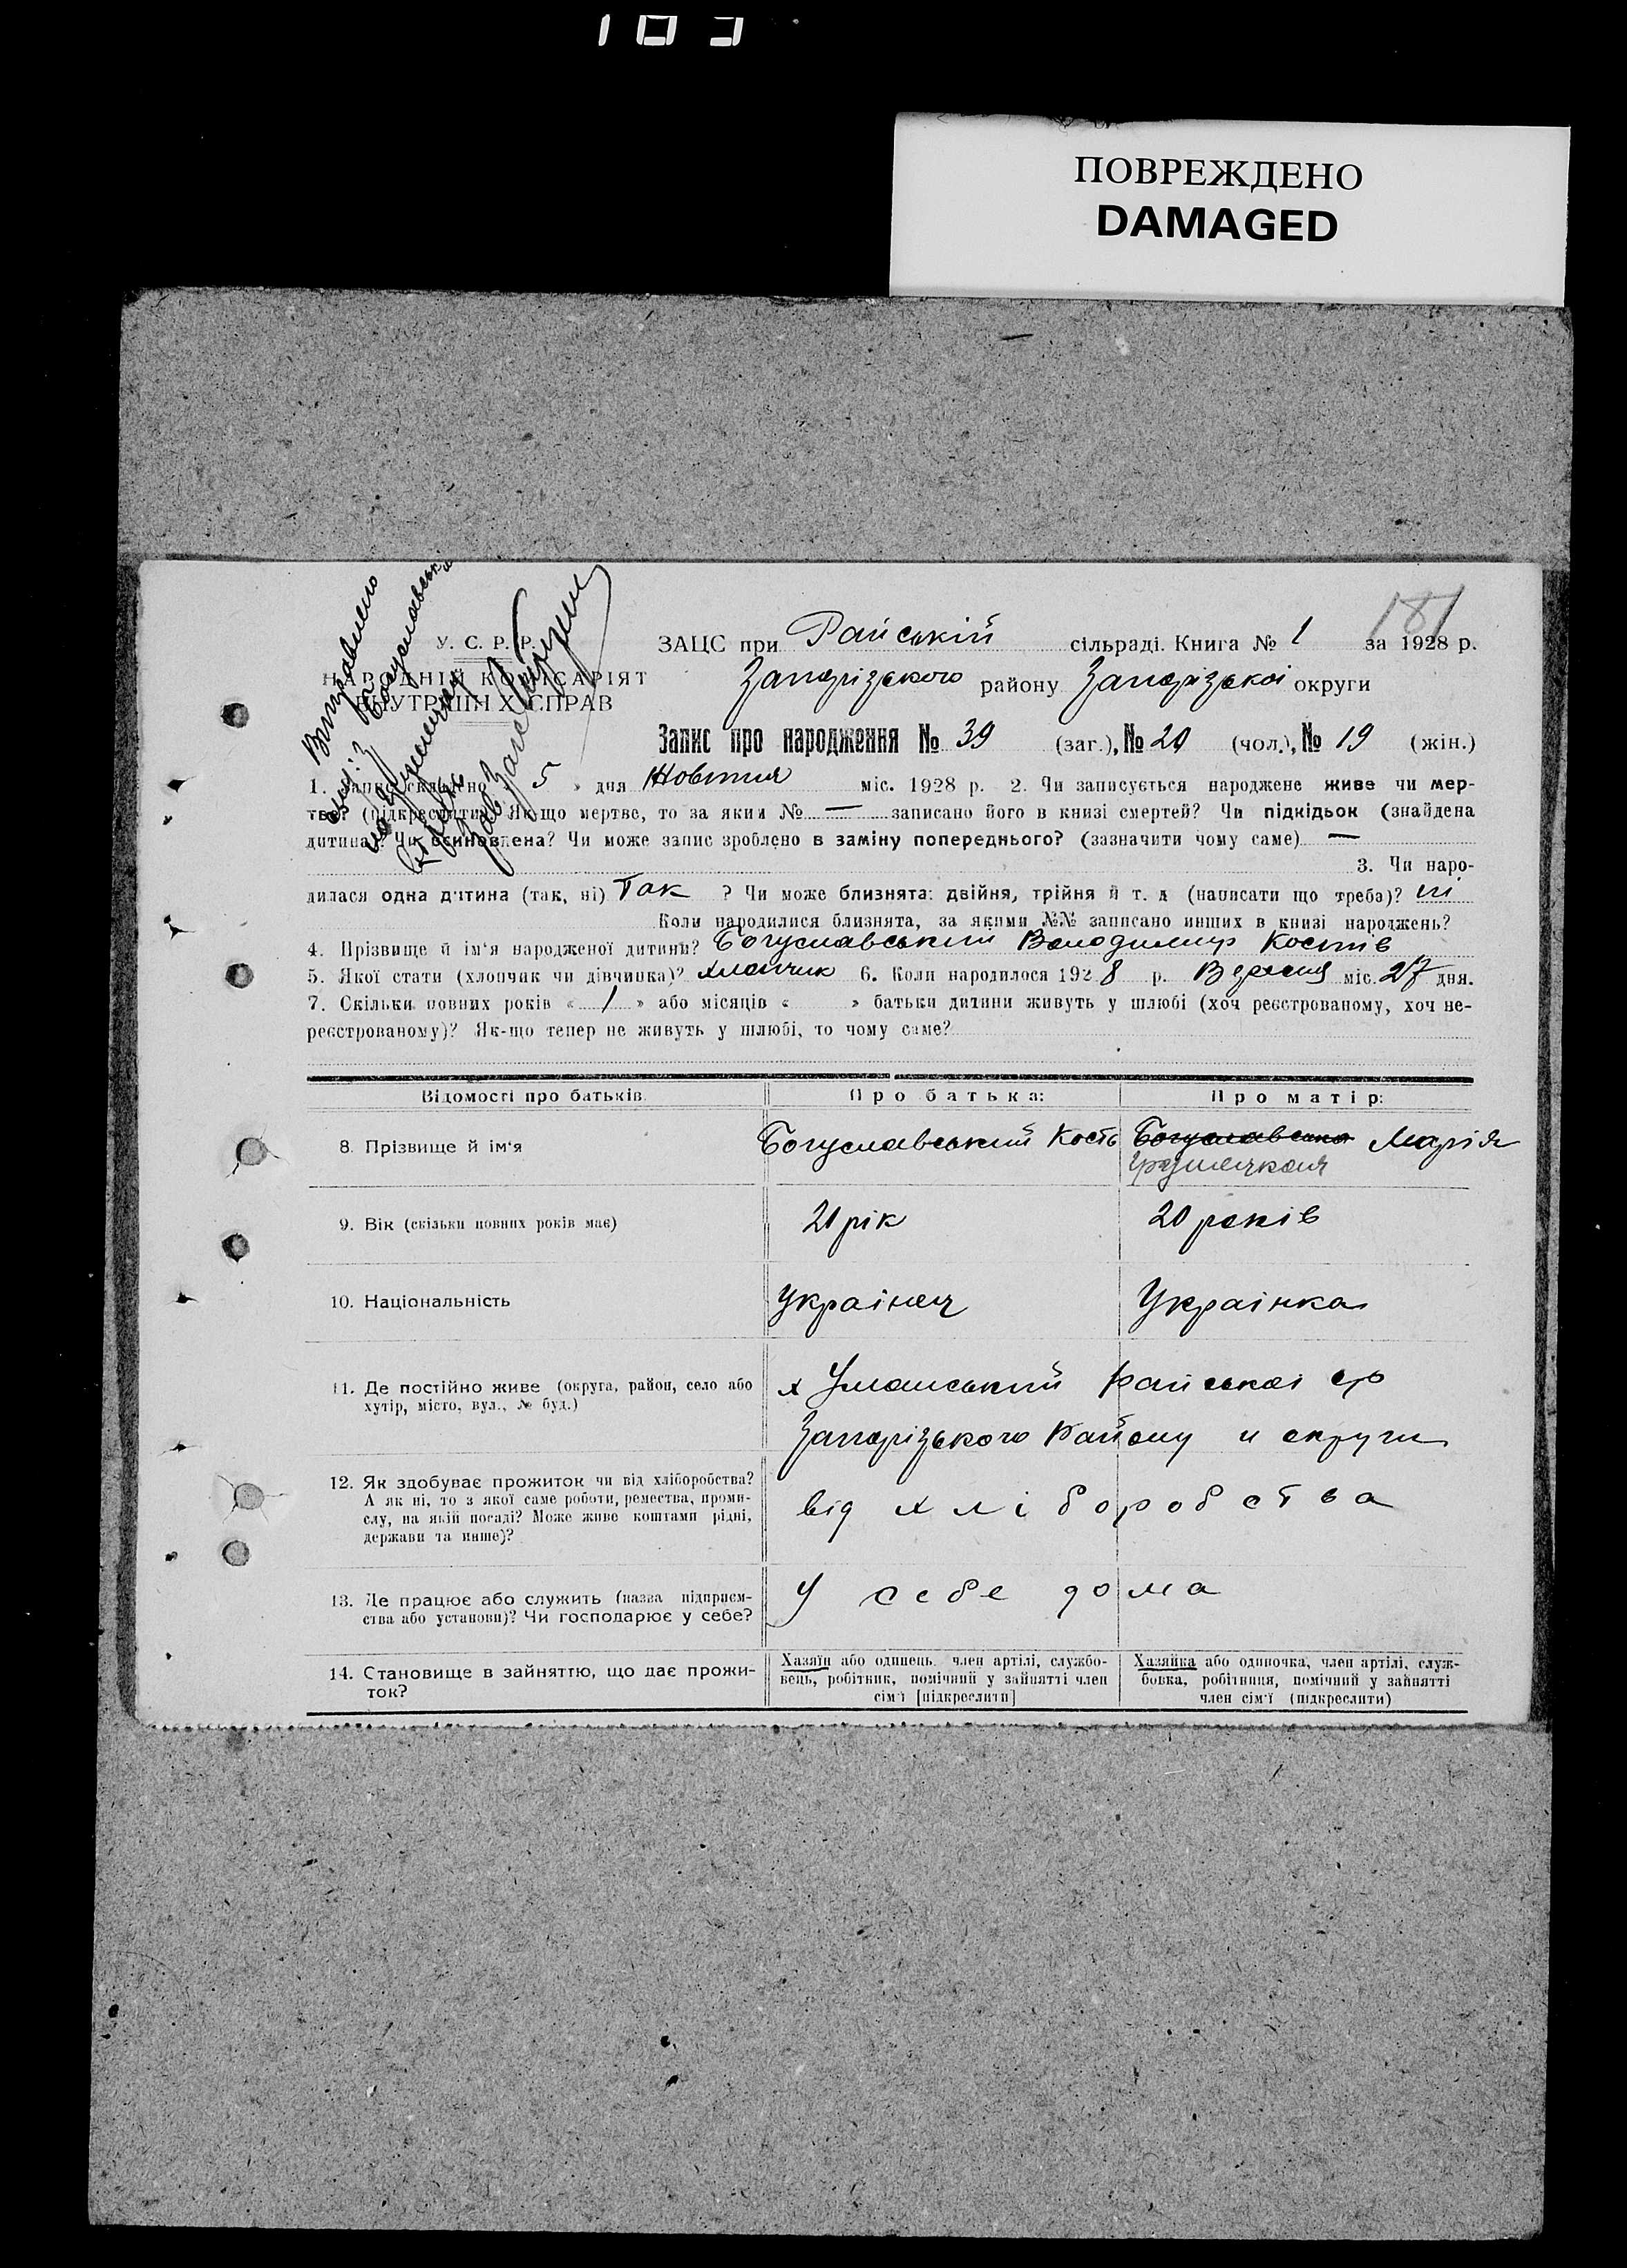 ПОВРЕЖДЕНО
DAMAGED
181
У. С. Р. Р.
НАРОДНІЙ КОМІСАРІЯТ
ВНУТРІШНІХ СПРАВ
Виправлено
Богуславськ
ЗАЦС при Райській сільраді. Книга № 1 за 1928 р.
Запорізького району Запорізької округи
Запис про народження № 39 (заг.), № 20 (чол.), № 19 (жін.)
1. Запис складено 5 » дня Жовтня міс. 1928 р. 2. Чи записується народжене живе чи мер-
тве? (підкреслити) Як-що мертве, то за яким № — записано його в книзі смертей? Чи підкідьок (знайдена
дитина)? Чи усиновлена? Чи може запис зроблено в заміну попереднього? (зазначити чому саме) —
3. Чи наро-
дилася одна дитина (так, ні) Так ? Чи може близнята: двійня, трійня й т. д (написати що треба)? ні
Коли народилися близнята, за якими №№ записано инших в книзі народжень?
4. Прізвище й ім'я народженої дитини? Богуславський Володимир Костів
5. Якої стати (хлопчик чи дівчинка)? хлопчик 6. Коли народилося 1928 р. Вересня міс. 27 дня.
7. Скільки повних років « 1 » або місяців « » батьки дитини живуть у шлюбі (хоч реєстрованому, хоч не-
реєстрованому)? Як-що тепер не живуть у шлюбі, то чому саме?
Відомості про батьків. Про батька: Про матір:
8. Прізвище й ім'я Богуславський Кость Богуславська Марія
9. Вік (скільки повних років має) 21 рік 20 років
10. Національність Українец Українка
11. Де постійно живе (округа, район, село або
хутір, місто, вул., № буд.)
х Уманський Райської с/р
Запорізького Району и округи
12. Як здобуває прожиток чи від хліборобства?
А як ні, то з якої саме роботи, ремества, проми-
слу, на якій посаді? Може живе коштами рідні,
держави та инше)?
від хліборобства
13. Де працює або служить (назва підприєм-
ства або установи)? Чи господарює у себе?
У себе дома
14. Становище в зайняттю, що дає прожи-
ток?
Хазяїн або одинець, член артілі, службо-
вець, робітник, помічний у зайнятті член
сім'ї [підкреслити]
Хазяйка або одиночка, член артілі, служ-
бовка, робітниця, помічний у зайнятті
член сім'ї (підкреслити)